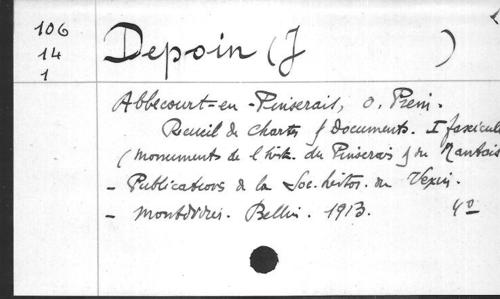 106
14
1
Depoin (J )
Abbecourt-en-Pinserais, O. Prém.
Recueil de Chartes & Documents. I fascicule
(Monuments de l'hist. du Pinserais & du Mantais
- Publications de la Soc. histor. du Vexin.
- Montdidier. Bellin. 1913. 4º